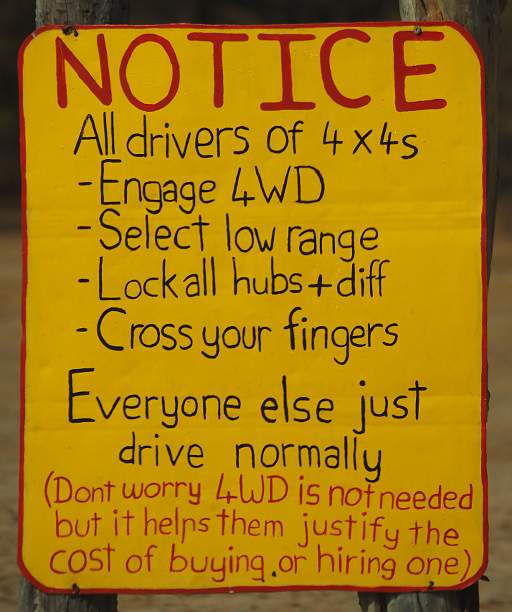 NOTICE
All drivers of 4x4s
-Engage 4WD
-Select low range
-Lock all hubs+diff
-Cross your fingers
Everyone else just
drive normally
(Dont worry 4WD is not needed
but it helps them justify the
cost of buying or hiring one)